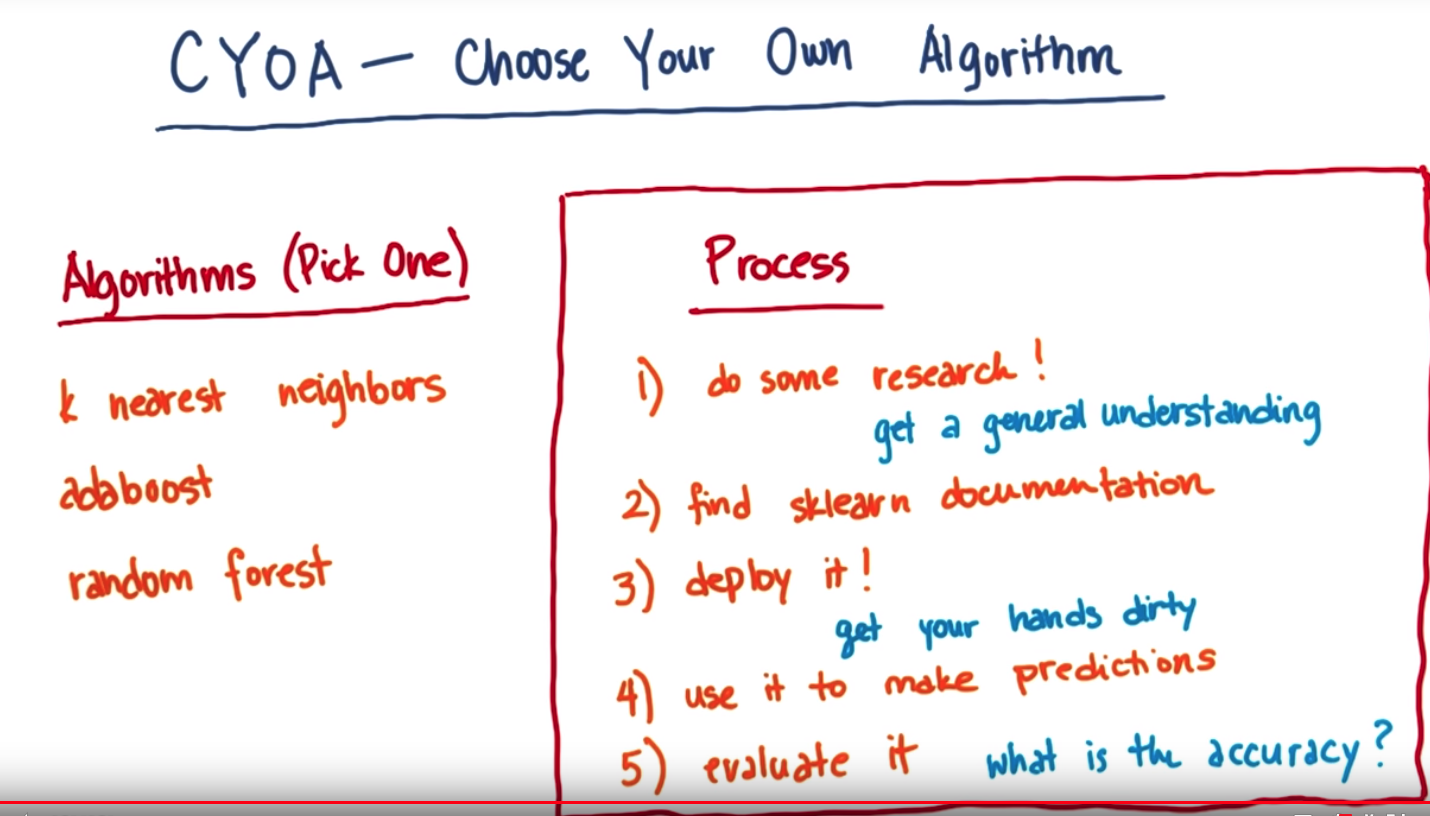 CYOA - Choose Your Own Algorithm
Algorithms (Pick One)
k nearest neighbors
adaboost
random forest
Process
1) do some research!
get a general understanding
2) find sklearn documentation
3) deploy it!
get your hands dirty
4) use it to make predictions
5) evaluate it what is the accuracy?